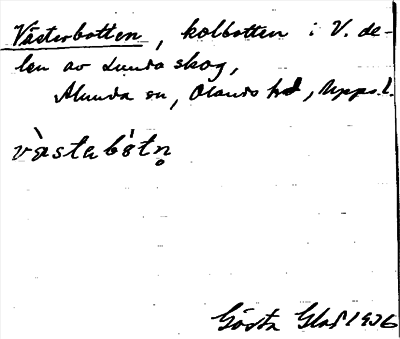 Västerbotten, kolbotten i V. de-
len av Lunda skog,
Alunda sn, Olands hd, Upps. l.
và̀stabòtn̥
Gösta Glad 1936